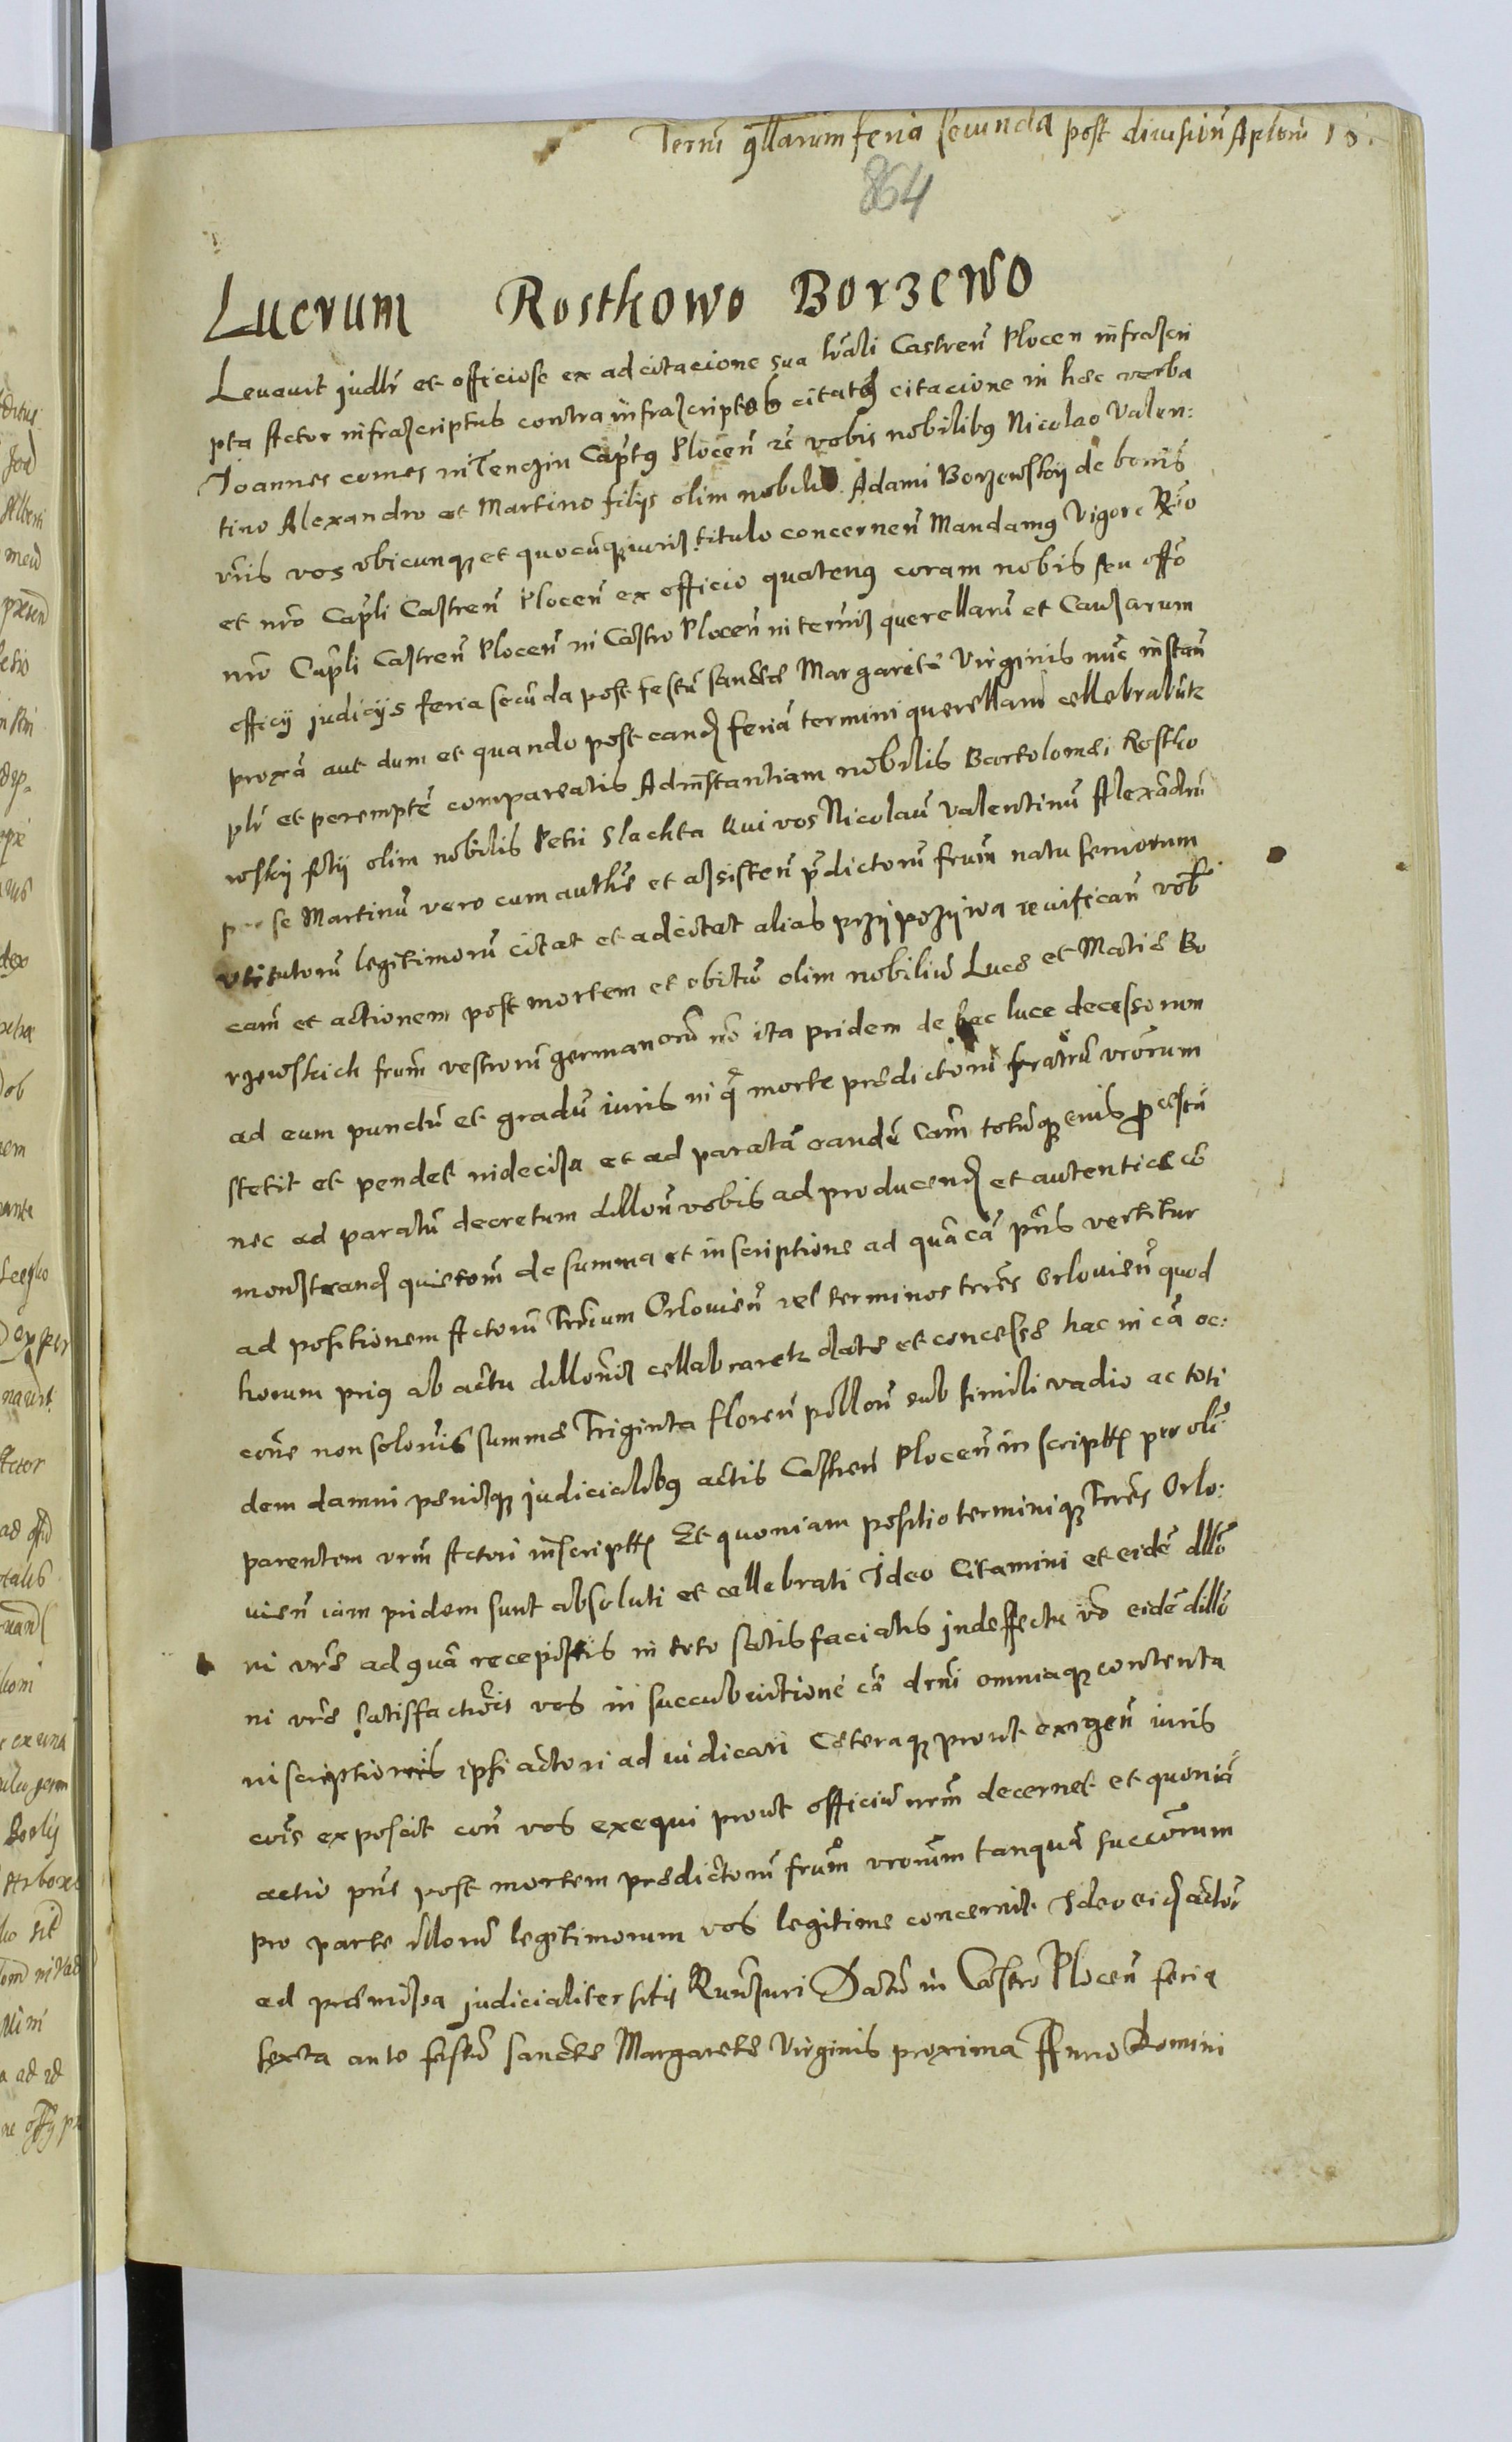 Termi qllarum feria secunda post divisioñ Aplorũ 15
864
Lucrum Rostkowo Borzewo
Levavit judlr et officiose ex adcitacione sua lrãli Castreñ Plocen infrascri
pta Actor infrascriptus contra infrascriptos citatq citacione in hæc verba
Joannes comes in Tenczin Captq Ploceñ rc vobis nobilibq Nicolao Valen:
tino Alexandro et Martino filijs olim nobilis Adami Borzewskij de bonis
vris vos ubicunqz et quocunqz iuris titulo concerneñ Mandamq Vigore Rõ
et nro Capli Castreñ Ploceñ ex officio quatenq coram nobis seu offo
nro Capli Castreñ Ploceñ in Castro Ploceñ in termis querellarũ et Causarum
officij judicijs feria secũda post festũ sanctæ Margaritæ Virginis nũc instañ
proxã aut dum et quando post eand feriã termini querellarũ cellebrabũtr
plr et peremptẽ compareatis Ad instantiam nobilis Bartolomæi Rostko
wskij filij olim nobilis Petri Slachta Qui vos Nicolaũ Valentinũ Alexãdrũ
per se Martinũ vero cum authte et assisteñ pdictorũ frum natu seniorum
uti tutorũ legitimorũ citat et adcitat alias przypozywa revificañ vob
cam et actionem post mortem et obitũ olim nobiliũ Lucæ et Matiæ Bo
rzewskich frum vestrorũ germanorũ nõ ita pridem de hac luce decessorum
ad eum punctũ et gradũ iuris in q morte prædictorũ fratrũ vrorum
stetit et pendet indecisa et ad paratã eandẽ Cam totũqz eius pcessũ
nec ad paratũ decretum dilloñ vobis ad producend et autenticæ cõ
monstrand quietoñ de summa et inscriptione ad quã cã pns vertitur
ad positionem Actorũ Trrium Orlovieñ vel terminos trres Orlovieñ quod
horum priq ab actu dillonis cellabraretr datæ et concessæ hac in cã oc:
cone non solonis summæ Triginta floreñ polloñ sub simili vadio ac toti
dem damni penisqz judicialibq actis Castreñ Ploceñ inscripttz per olĩ
parentem vrm Actori inscripttz Et quoniam positio terminiqz Trres Orlo:
vieñ iam pridem sunt absoluti et cellebrati Ideo Citamini et eidẽ dllõ
ni vræ ad quã recepistis in toto satisfaciatis In deffectu vo eidẽ dillõ
ni vræ satisfactiõis vos in succubuitione cæ drni omniaqz contenta
inscriptionis ipsi actori ad iudicari Cæteraqz prout exigeñ iuris
coris exposcit coñ vos exequi prout officiũ nrm decernet et quoniã
actio pns post mortem prædictorũ frum vrorum tanquã succorum
pro parte illorũ legitimorum vos legitime concernit Ideo eid actori
ad præmissa judicialiter sitis Runsuri Datũ in Castro Ploceñ feria
sexta ante festũ sanctæ Margaretæ Virginis proxima Anno Domini